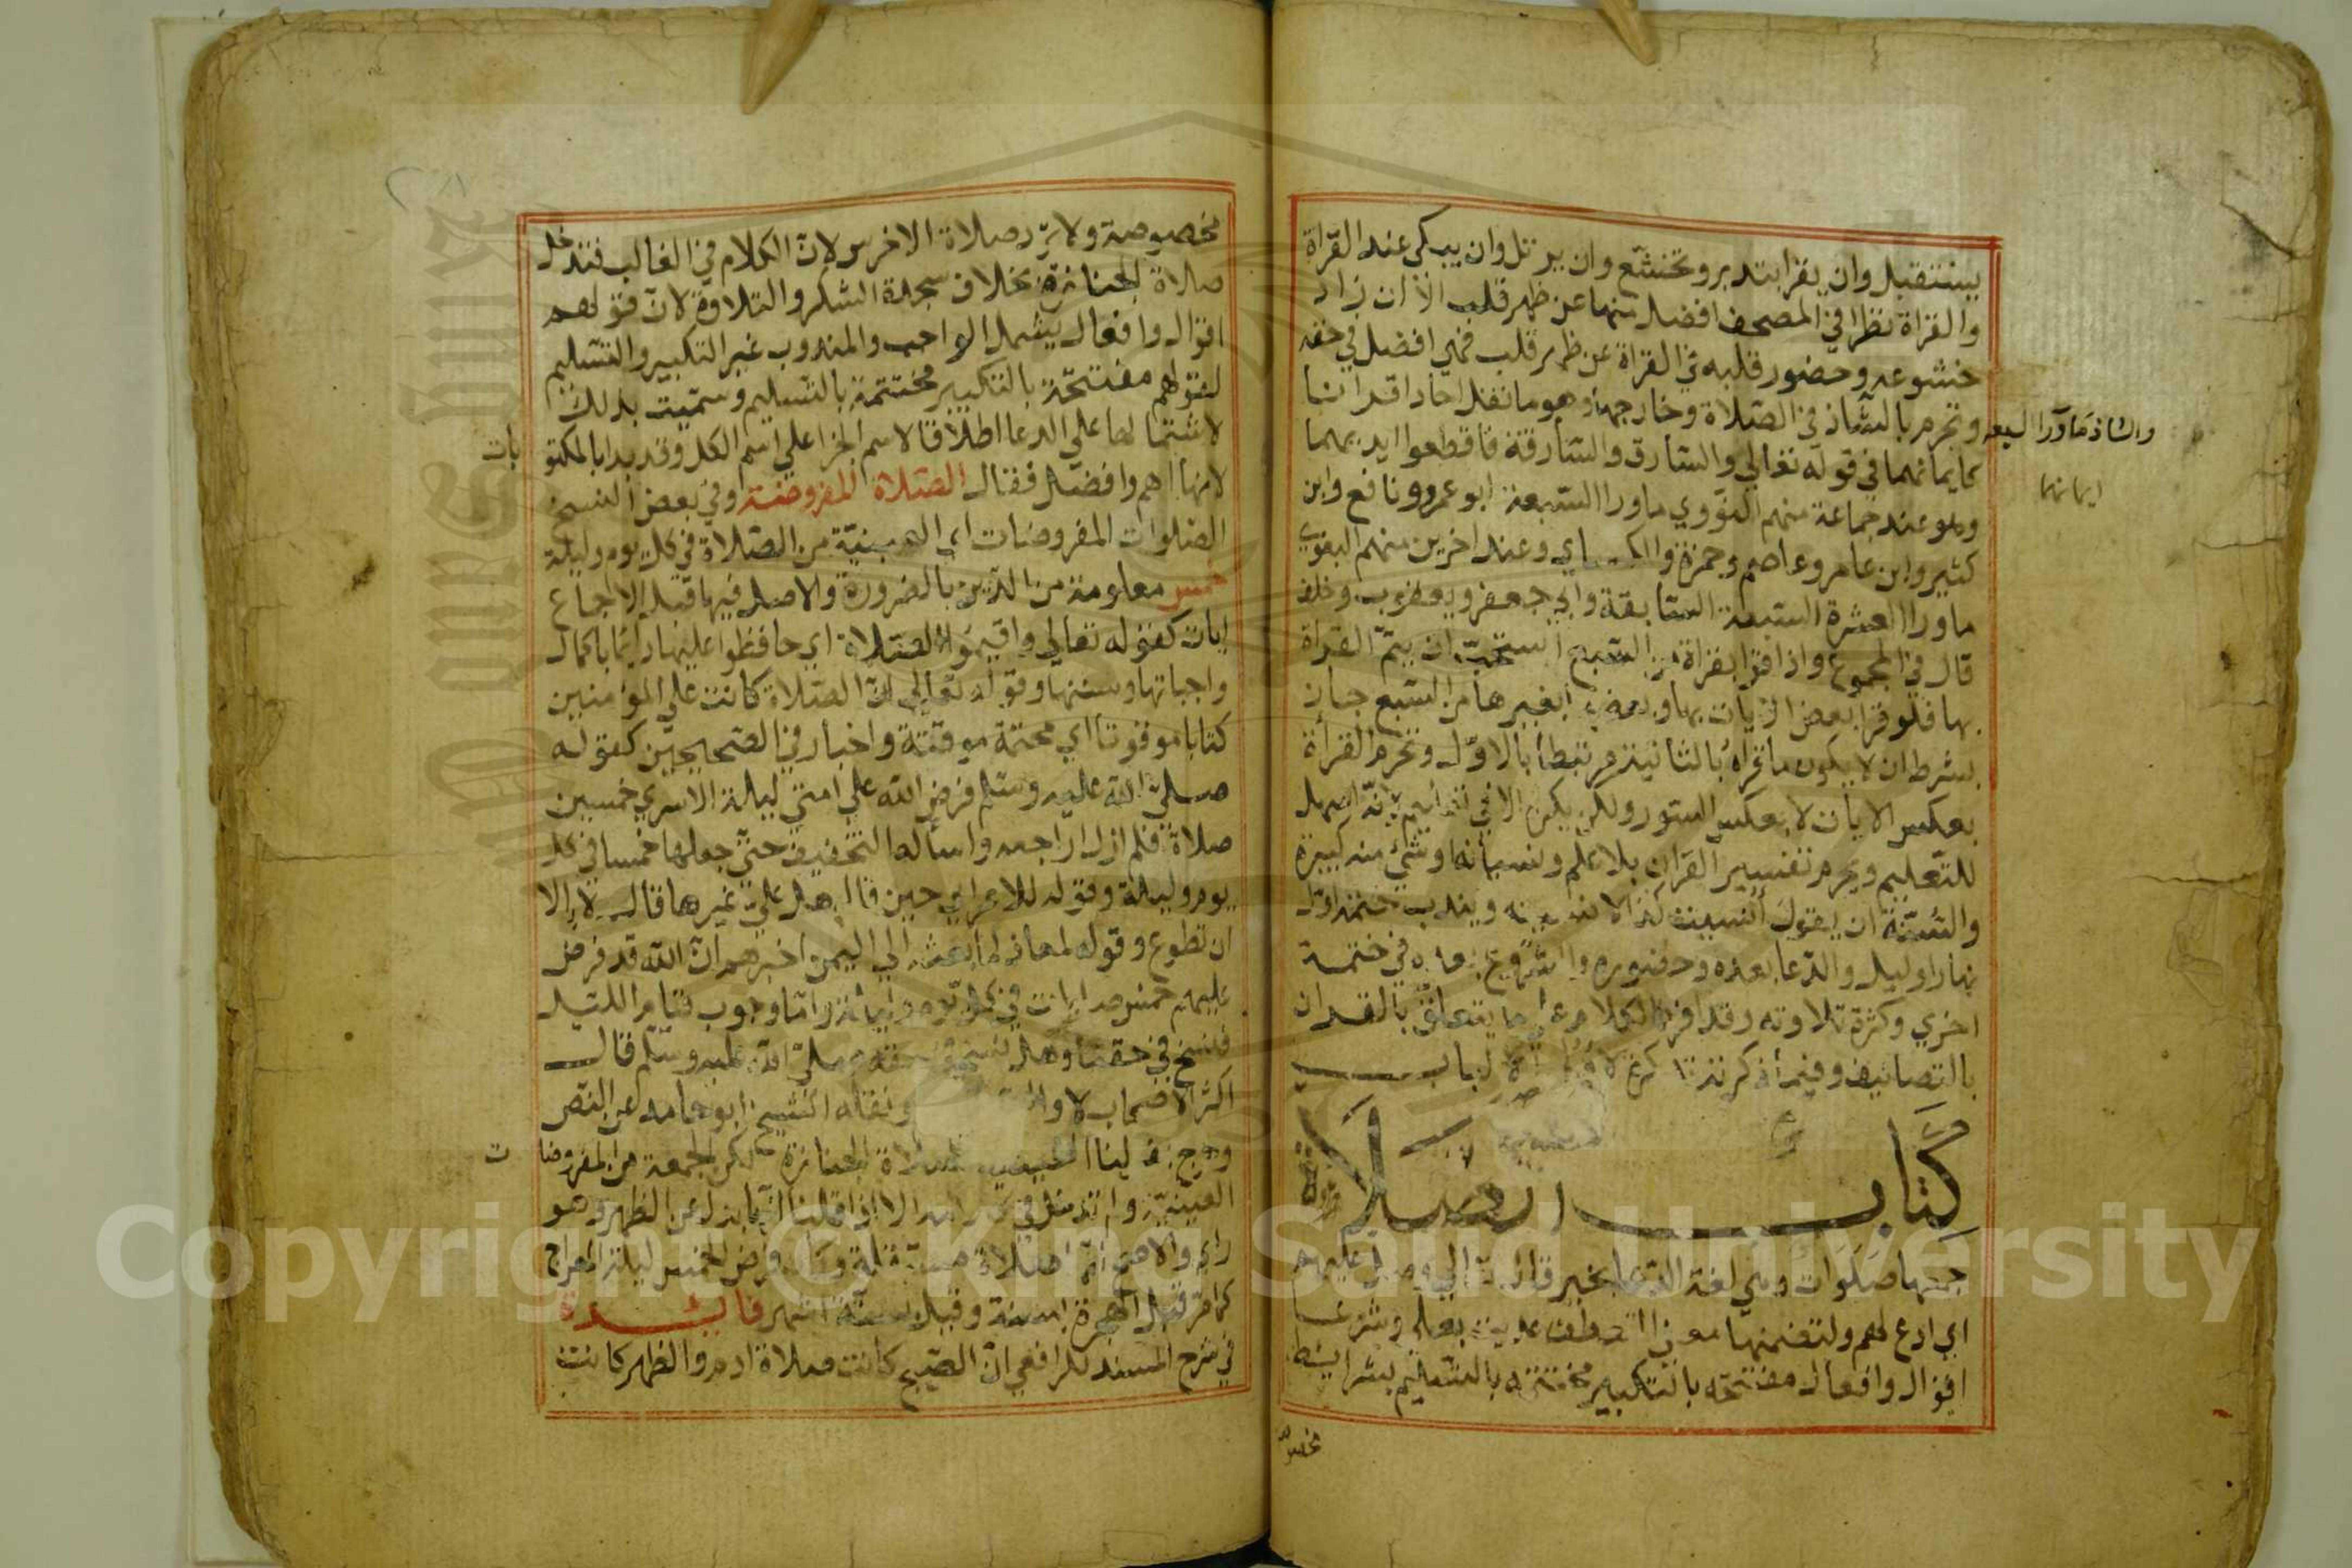 يستقبل وان يقرا بتدبر وتخشع وان يرتل وان يبكي عند القراة
والقراة نظرا في المصحف افضل منها عن ظهر قلب الا ان زاد
خشوعه وحضور قلبه في القراة عن ظهر قلب فهي افضل في حقه
وتحرم بالشاذ في الصلاة وخارجها وهو ما نقل احادا قرانا
والشاذ ما ورا السبعه
كايمانهما في قوله تعالي والسارق والسارقة فاقطعوا ايديهما
ايمانهما
وهو عند جماعة منهم النووي ماورا السبعة ابو عمرو ونافع وابن
كثير وابن عامر وعاصم وحمزة والكساي وعند اخرين منهم البغوي
ماورا العشرة السبعة السابقة وابي جعفر ويعقوب وخلف
قال في المجموع واذا قرا بقراة من السبع استحب ان يتم القراة
بها فلو قرا بعض الايات بها وبعضها بغيرها من السبع جاز
بشرط ان لا يكون ما قراه بالثانية مرتبطا بالاول وتحرم القراة
بعكس الايات لا بعكس السور ولكن يكره الا في تعليم لانه اسهل
للتعليم ويحرم تفسير القران بلا علم ونسيانه اوشي منه كبيرة
والسنة ان يقول أنسيت كذا لا نسيته ويندب ختمه اول
نهار او ليل والدعا بعده وحضوره والشروع بعده في ختمة
اخري وكثرة تلاوته وقد افرد الكلام على ما يتعلق بالقران
بالتصانيف وفيما ذكرته تذكرة لاولي الالباب
كتاب الصلاة
جمعها صلوات وهي لغة الدعا بخير قال تعالي وصل عليهم
اي ادع لهم ولتضمنها معني التعطف عديت بعلي وشرعا
اقوال وافعال مفتتحه بالتكبير مختتمه بالتسليم بشرايط
مخصو
مخصوصة ولا يرد صلاة الاخرس لان الكلام في الغالب فتدخل
صلاة الجنازة بخلاف سجدة الشكر والتلاوة لان قولهم
اقوال وافعال يشمل الواجب والمندوب غير التكبير والتسليم
لقولهم مفتتحة بالتكبير مختتمة بالتسليم وسميت بذلك
لاشتمالها علي الدعا اطلاقا لاسم الجزا علي اسم الكل وقد بدا بالمكتو
بات
لانها اهم وافضل فقال الصلاة المفروضة وفي بعض النسخ
الصلوات المفروضات اي العينية من الصلاة في كل يوم وليلة
خمس معلومة من الدين بالضرورة والاصل فيها قبل الاجماع
ايات كقوله تعالي واقيموا الصلاة اي حافظوا عليها دايما باكمال
واجباتها وسننها وقوله تعالي ان الصلاة كانت علي المومنين
كتابا موقوتا اي محتمة موقتة واخبار في الصحيحين كقوله
صلي الله عليه وسلم فرض الله علي امتي ليلة الاسري خمسين
صلاة فلم ازل اراجعه واساله التخفيف حتي جعلها خمسا في كل
يوم وليلة وقوله للاعرابي حين قال هل علي غيرها قال لا إلا
ان تطوع وقوله لمعاذ لما بعثه الي اليمن اخبرهم ان الله قد فرض
عليهم خمس صلوات في كل يوم وليلة واما وجوب قيام الليل
فنسخ في حقنا وهل نسخ في حقه صلي الله عليه وسلم قال
اكثر الاصحاب لا ونقله الشيخ ابو حامد عن النص
وخرج بقولنا العينية صلاة الجنازة لكن الجمعة من المفروضا
ت
العينية ولم تدخل في كلامه الا اذا قلنا انها بدل عن الظهر وهو
راي والاصح انها صلاة مستقلة وكان فرض الخمس ليلة المعراج
كما مر قبل الهجرة بسنة وقيل بستة اشهر فائدة
في شرح المسند للرافعي ان الصبح كانت صلاة ادم والظهر كانت
Copyright © King Saud University